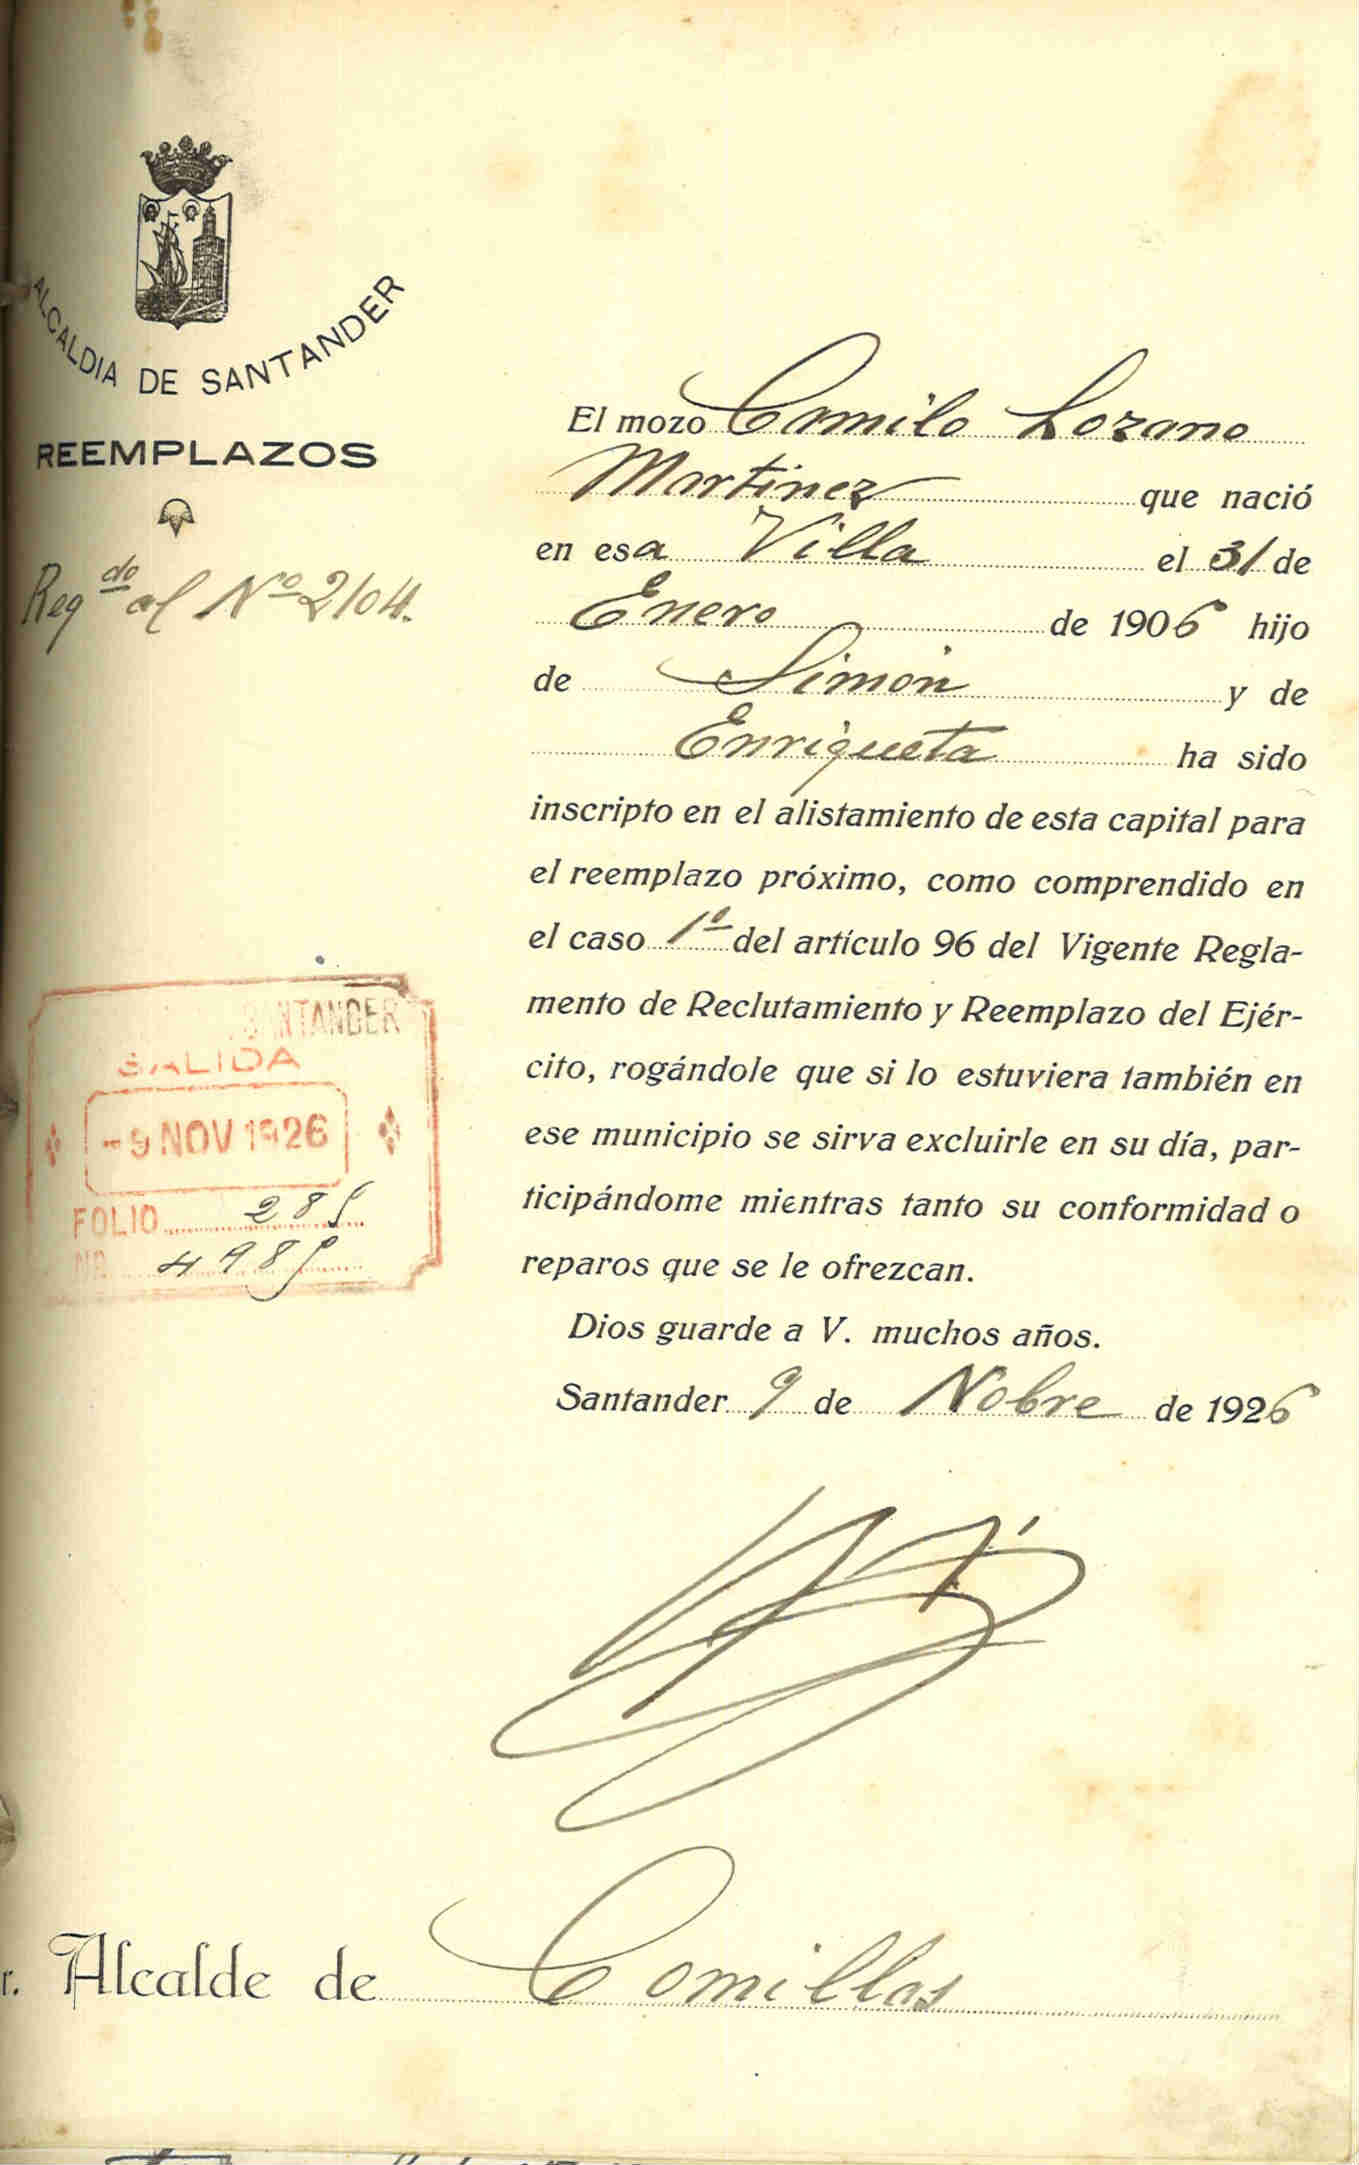 ALCALDIA DE SANTANDER
REEMPLAZOS
Reg.do al Nº 2104.
El mozo Camilo Lozano
Martinez que nació
en esa Villa el 31 de
Enero de 1906 hijo
de Simón y de
Enriqueta ha sido
inscripto en el alistamiento de esta capital para
el reemplazo próximo, como comprendido en
el caso 1º del artículo 96 del Vigente Regla-
mento de Reclutamiento y Reemplazo del Ejér-
cito, rogándole que si lo estuviera también en
ese municipio se sirva excluirle en su día, par-
ticipándome mientras tanto su conformidad o
reparos que se le ofrezcan.
Dios guarde a V. muchos años.
Santander 9 de Nobre de 1926
SANTANDER
SALIDA
-9 NOV 1926
FOLIO 285
NR. 4985
r. Alcalde de Comillas